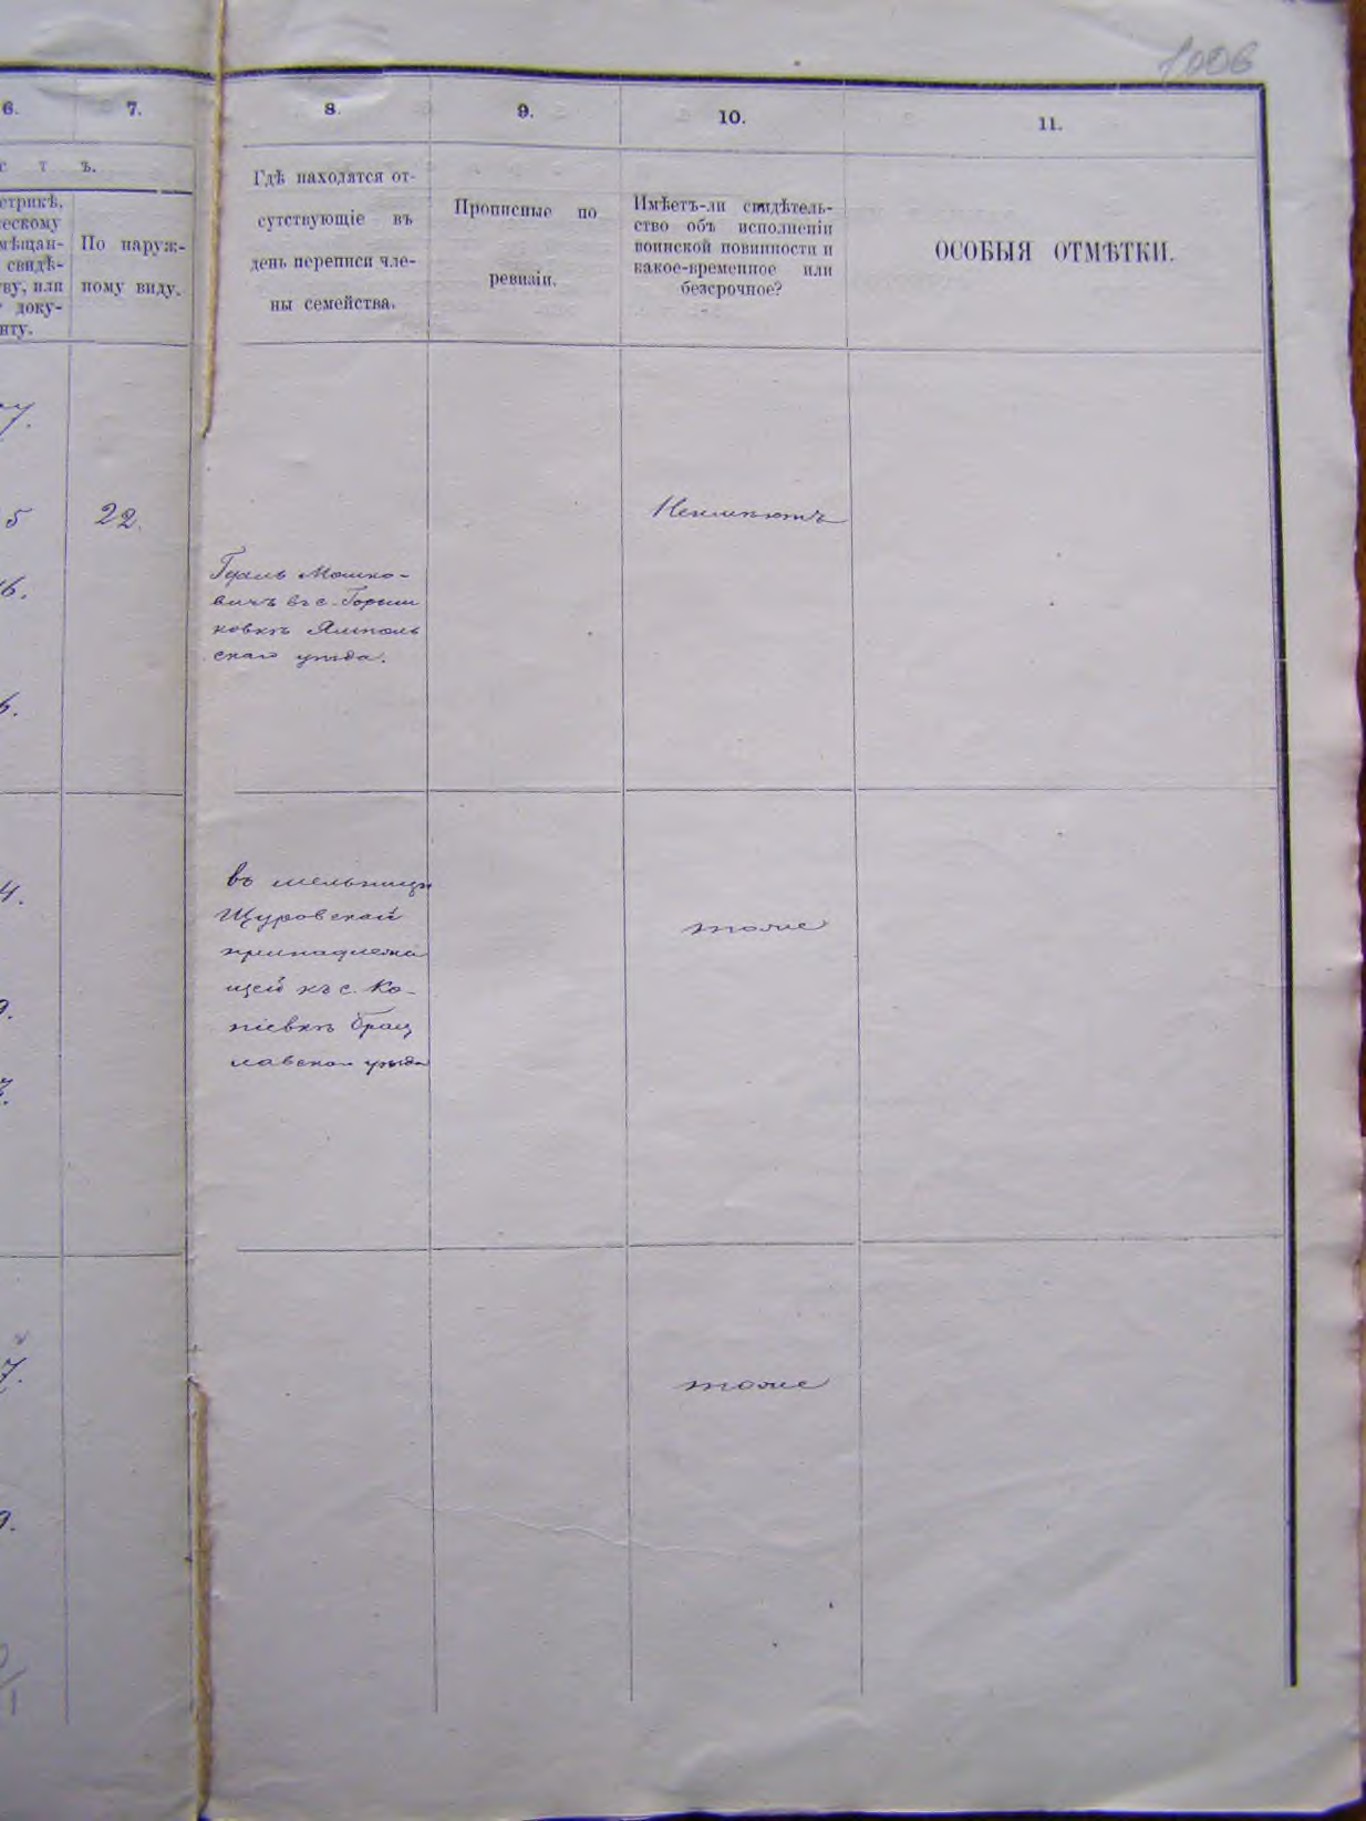 1006
6.
7.
8.
9.
10.
11.
с т ъ.
етрикѣ,
ческому
мѣщан-
свидѣ-
ву, или
доку-
нту.
По наруж-
ному виду.
Гдѣ находятся от-
сутствующіе въ
день переписи чле-
ны семейства.
Прописные по
ревизіи.
Имѣетъ-ли свидѣтель-
ство объ исполненіи
воинской повинности и
какое-временное или
безсрочное?
ОСОБЫЯ ОТМѢТКИ.
5
22.
Неимѣютъ
6.
Мошко-
вичъ въ с. Горыш
ковкѣ Ямполь
скаго уѣзда.
6.
4.
въ мельницѣ
Щуровской
принадлежа
щей къ с. Ко-
піевкѣ Брац
лавскаго уѣзда
тоже
9.
7.
тоже
9.